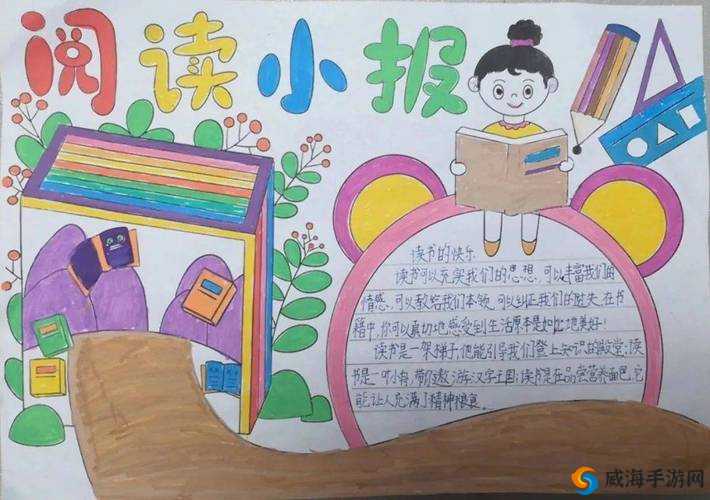 阅读小报
读书的快乐
读书可以充实我们的思想,可以丰富我们的
情感,可以教给我们本领,可以纠正我们的过失,在书
籍中,你可以真切地感受到生活原本是如此地美好!
读书是一架梯子,他能引导我们登上知识的殿堂;读
书是一叶小舟,带你遨游汉字王国;读书是在品尝营养面包,它
能让人充满了精神粮食。
威海手游网